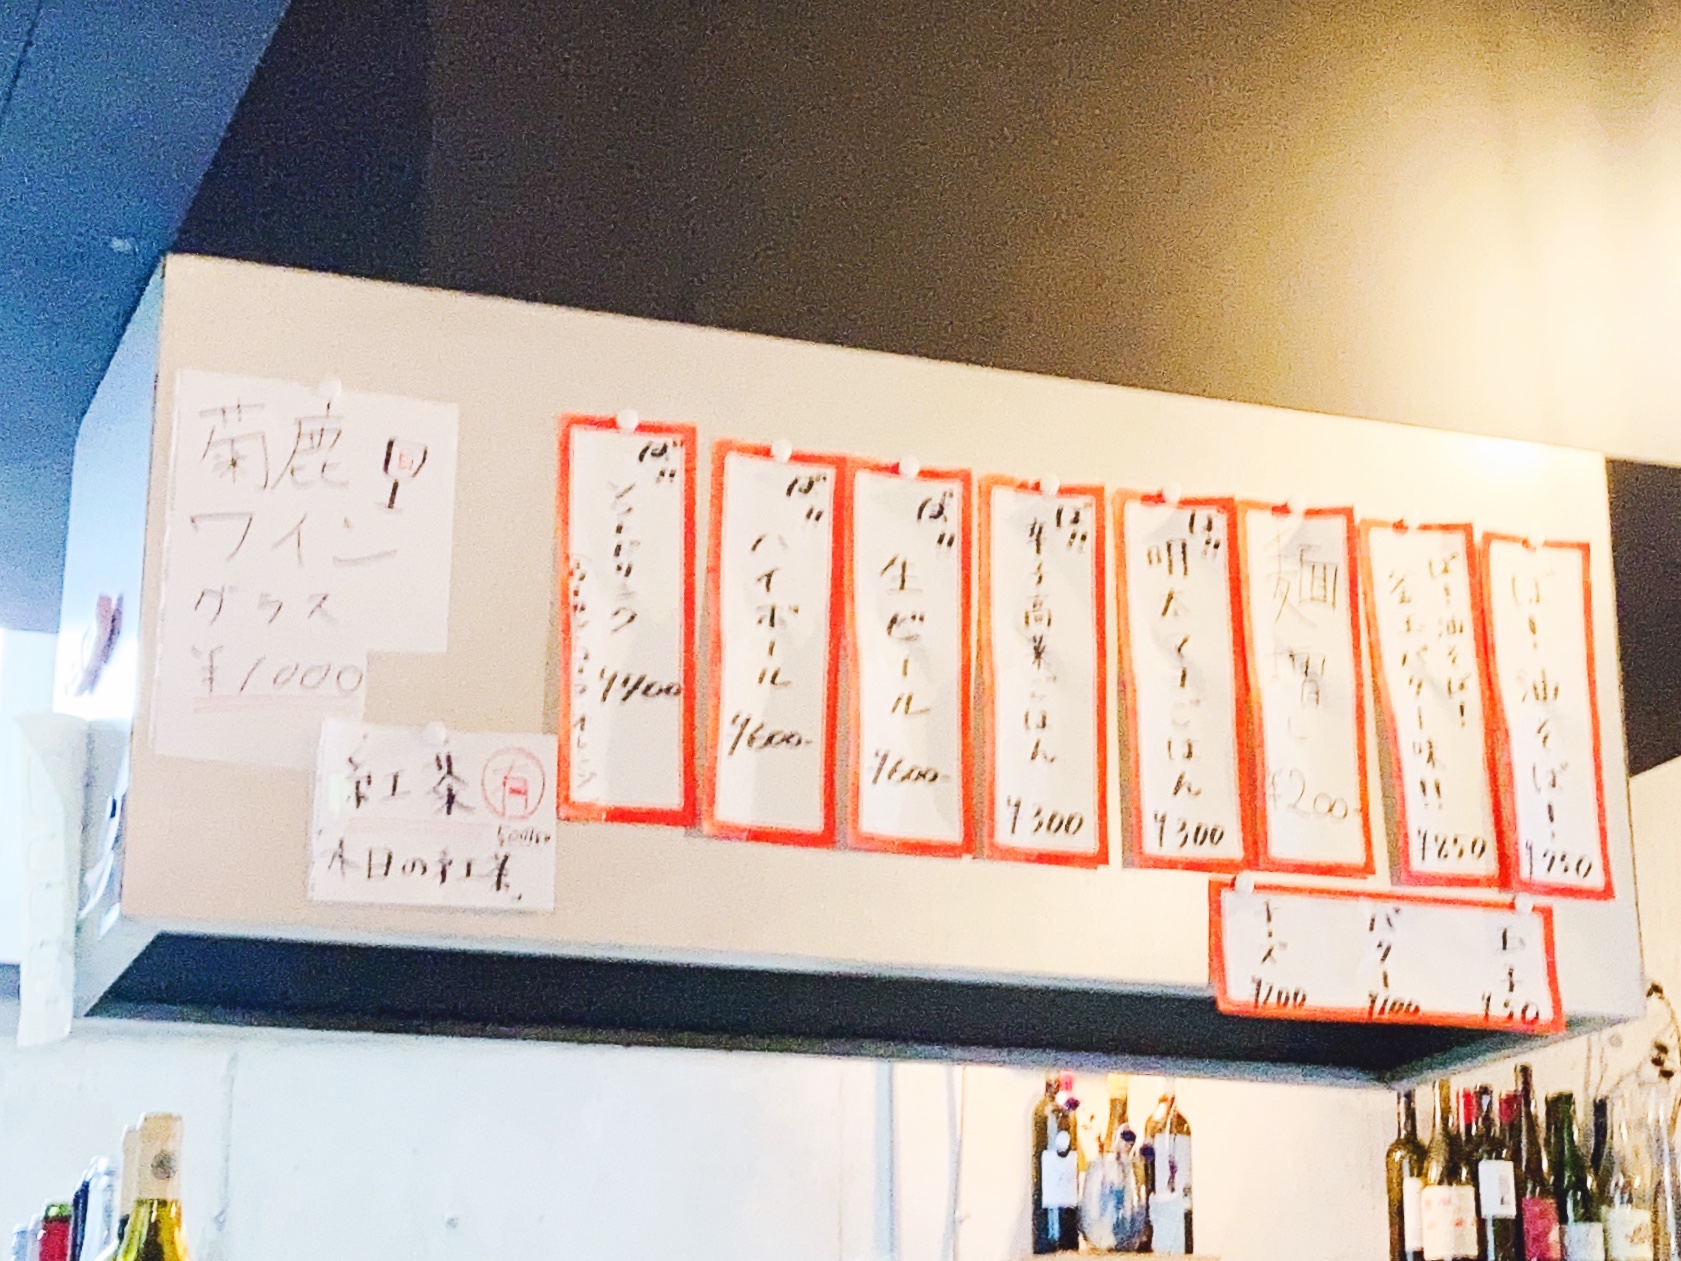 菊鹿
ワイン
グラス
¥1000
紅茶 有
本日の紅茶
ば!!
ソフトドリンク
¥400
ば!!
ハイボール
¥600-
ば!!
生ビール
¥600-
ば!!
辛子高菜ごはん
¥300
ば!!
明太マヨごはん
¥300
麺増し
¥200-
ば!油そば!
釜玉バター味!!
¥850
ば!油そば!
¥750
チーズ
¥100
バター
¥100
¥50